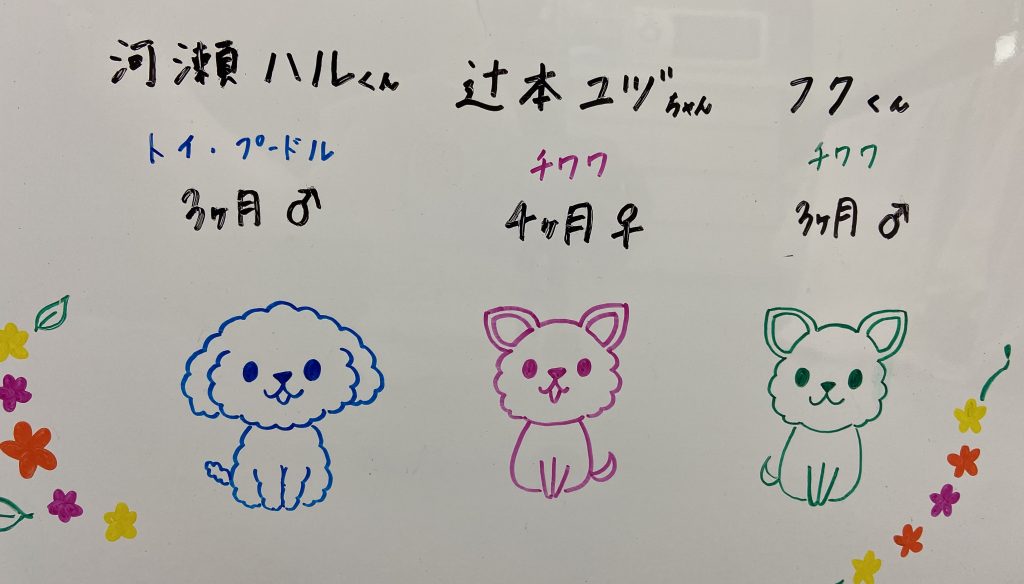 河瀬 ハルくん
トイ・プードル
3ヶ月 ♂
辻本 ユヅちゃん
チワワ
4ヶ月 ♀
フクくん
チワワ
3ヶ月 ♂